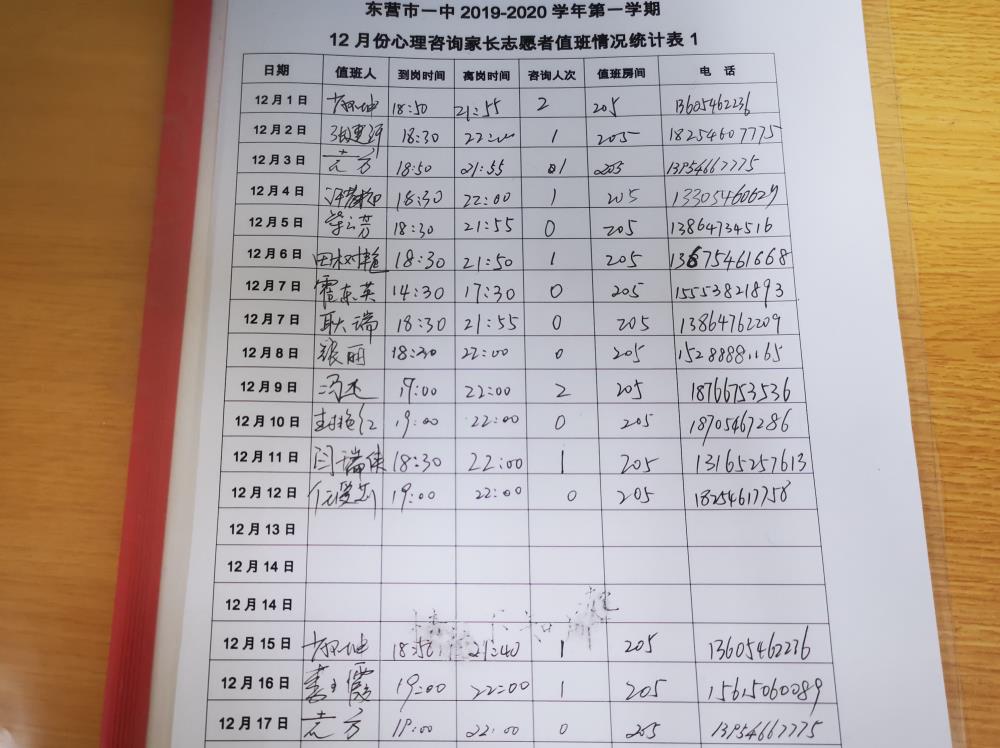 东营市一中 2019-2020 学年第一学期
12 月份心理咨询家长志愿者值班情况统计表 1
日期 值班人 到岗时间 离岗时间 咨询人次 值班房间 电 话
12 月 1 日 18:50 21:55 2 205 13605462236
12 月 2 日 18:30 22:00 1 205 18254607775
12 月 3 日 18:50 21:55 1 205 13954667775
12 月 4 日 18:30 22:00 1 205 13305460629
12 月 5 日 柴云芳 18:30 21:55 0 205 13864734516
12 月 6 日 田树艳 18:30 21:50 1 205 13675461668
12 月 7 日 霍东英 14:30 17:30 0 205 15553821893
12 月 7 日 耿瑞 18:30 21:55 0 205 13864762209
12 月 8 日 张丽 18:30 22:00 0 205 15288881165
12 月 9 日 19:00 22:00 2 205 18766753536
12 月 10 日 封艳红 19:00 22:00 0 205 18705467286
12 月 11 日 闫瑞侠 18:30 22:00 1 205 13165257613
12 月 12 日 19:00 22:00 0 205 18254617758
12 月 13 日
12 月 14 日
12 月 14 日
12 月 15 日 18:50 21:40 1 205 13605462236
12 月 16 日 19:00 22:00 1 205 15615060089
12 月 17 日 19:00 22:00 0 205 13954667775